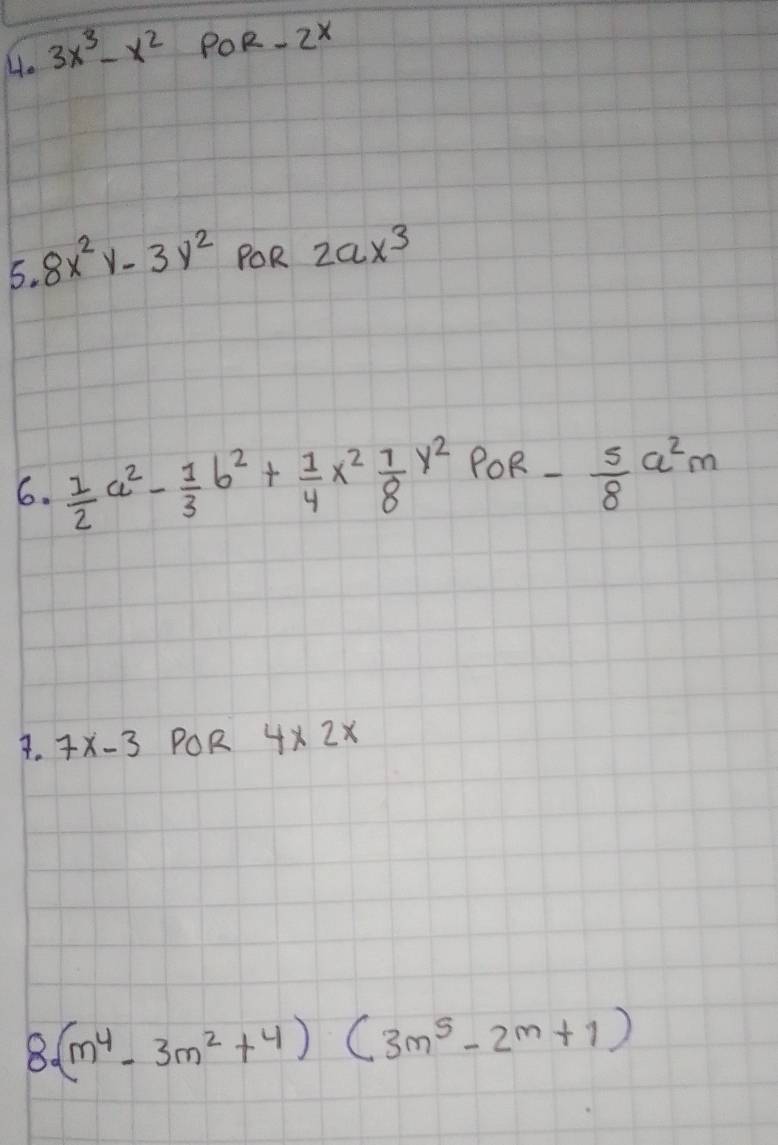 4. 3x³ - x² POR - 2x
5. 8x²y - 3y² POR 2ax³
6. 1/2 a² - 1/3 b² + 1/4 x² 1/8 y² POR - 5/8 a²m
7. 7x - 3 POR 4x 2x
8. (m⁴ - 3m² + 4) (3m⁵ - 2m + 1)